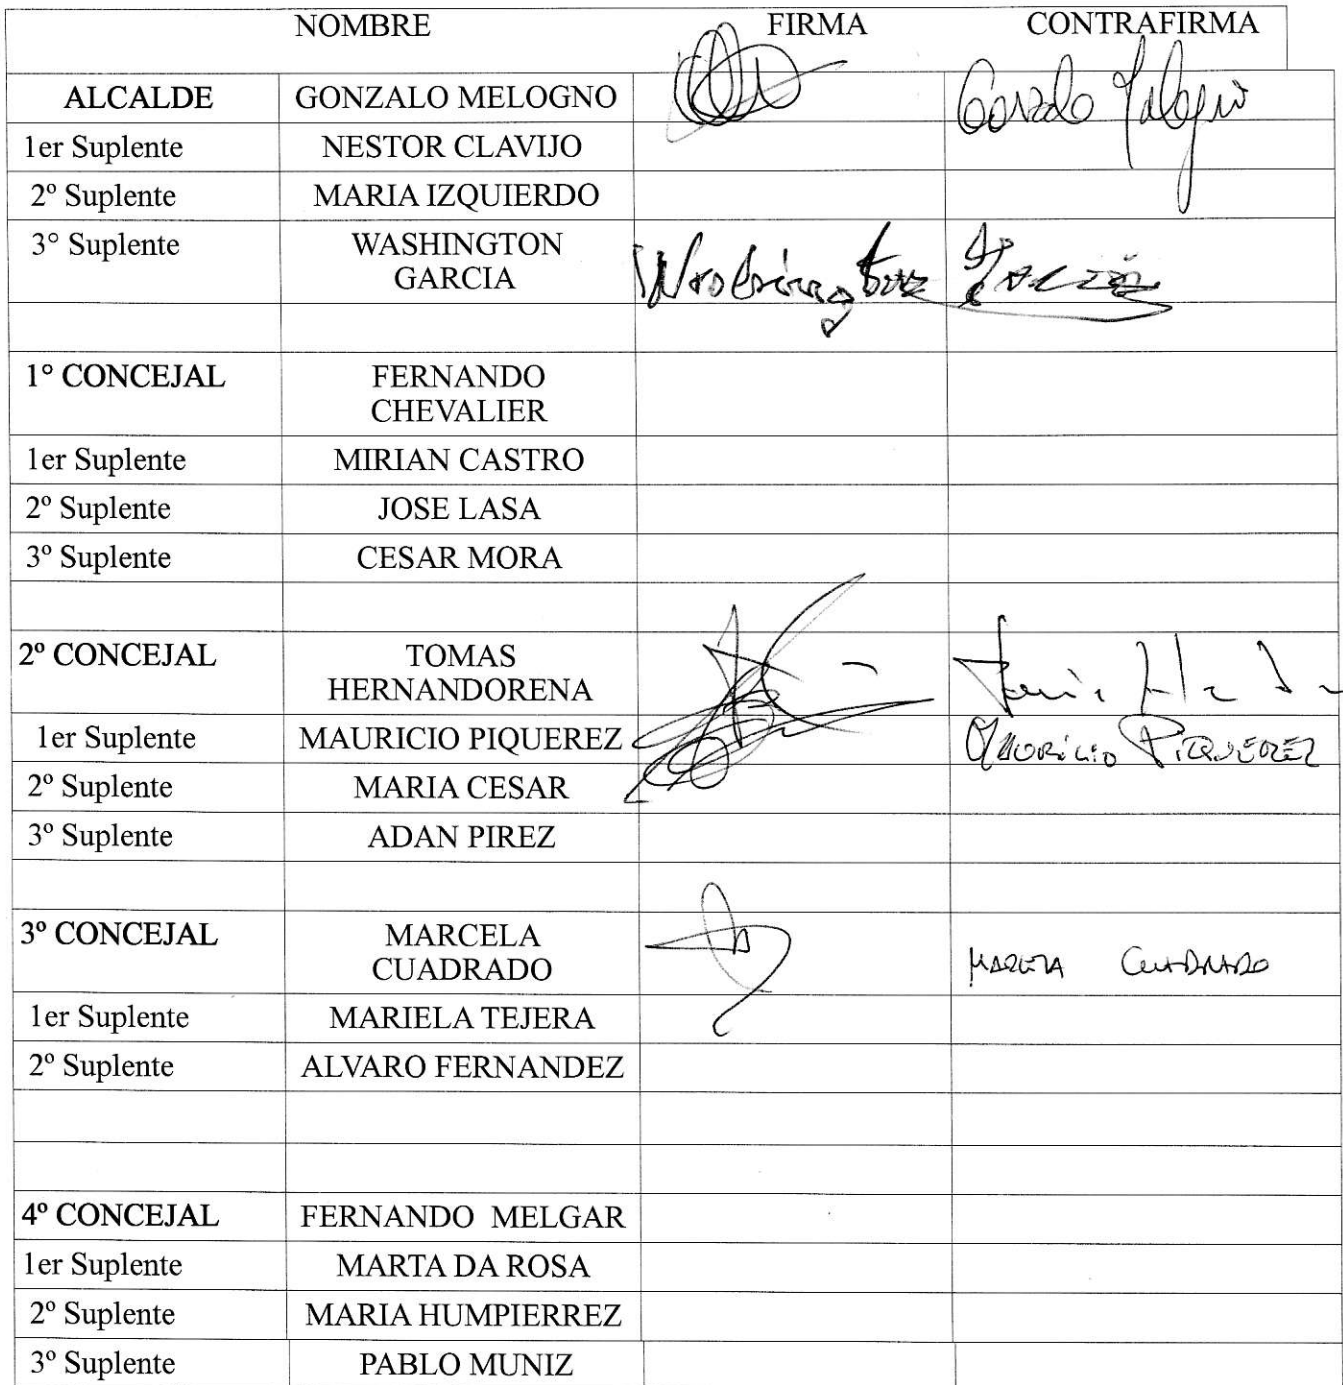 NOMBRE FIRMA CONTRAFIRMA
ALCALDE GONZALO MELOGNO Gonzalo Melogno
1er Suplente NESTOR CLAVIJO
2º Suplente MARIA IZQUIERDO
3° Suplente WASHINGTON
GARCIA Washington Garcia
1° CONCEJAL FERNANDO
CHEVALIER
1er Suplente MIRIAN CASTRO
2º Suplente JOSE LASA
3º Suplente CESAR MORA
2º CONCEJAL TOMAS
HERNANDORENA
1er Suplente MAURICIO PIQUEREZ MAURICIO PIQUEREZ
2º Suplente MARIA CESAR
3º Suplente ADAN PIREZ
3º CONCEJAL MARCELA
CUADRADO MARCELA CUADRADO
1er Suplente MARIELA TEJERA
2º Suplente ALVARO FERNANDEZ
4º CONCEJAL FERNANDO MELGAR
1er Suplente MARTA DA ROSA
2º Suplente MARIA HUMPIERREZ
3º Suplente PABLO MUNIZ